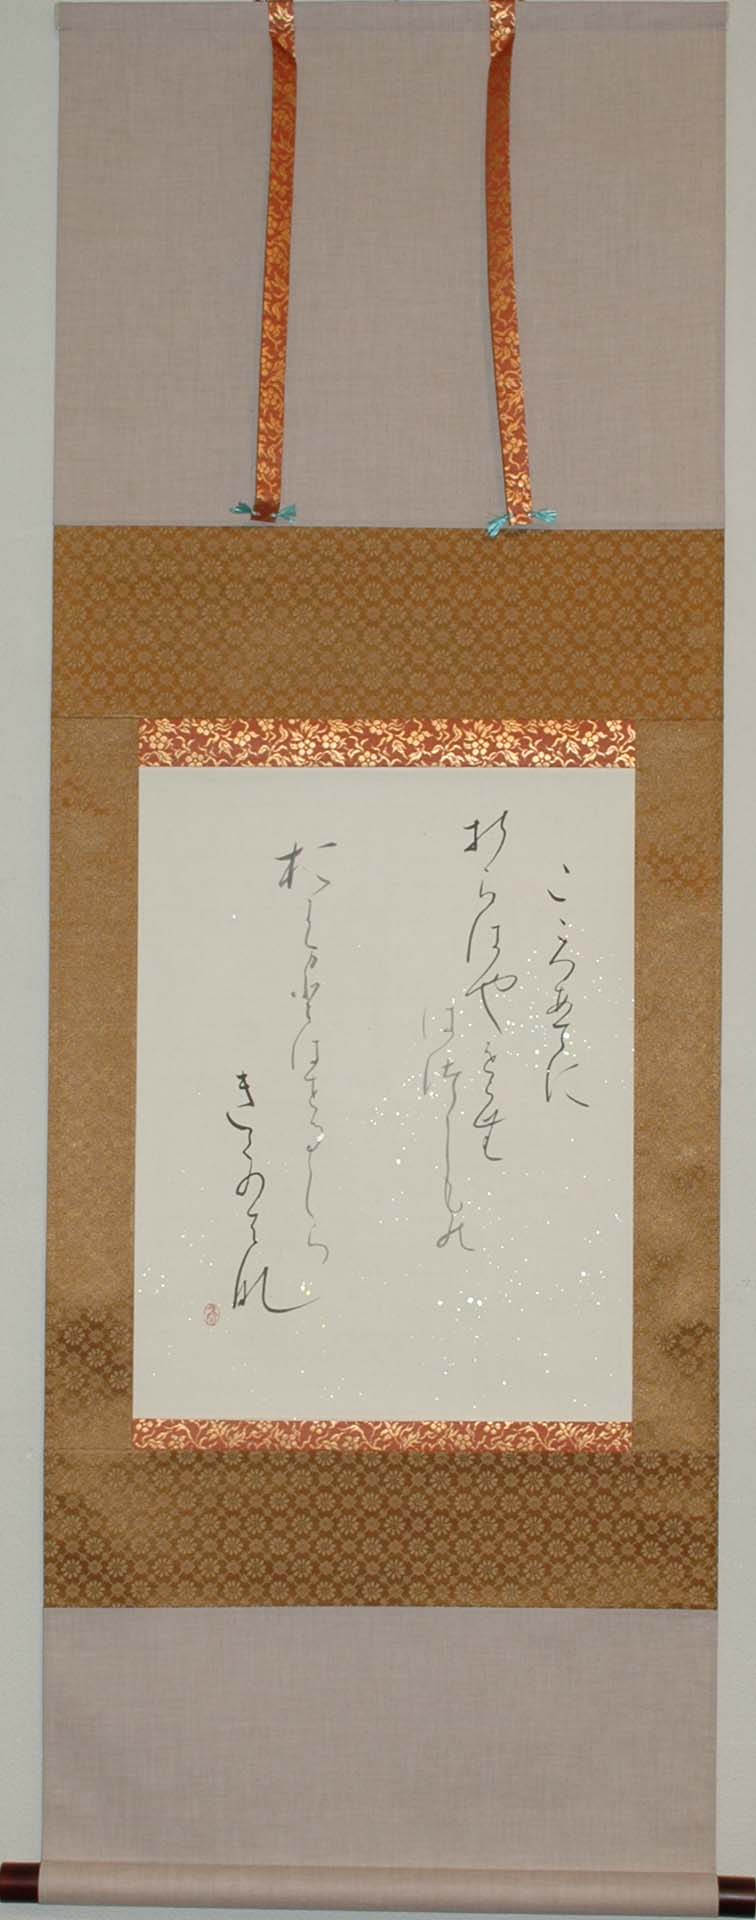 こゝろあてに
折らはやをらむ
はつしもの
於きまとはせるしら
きくのはな